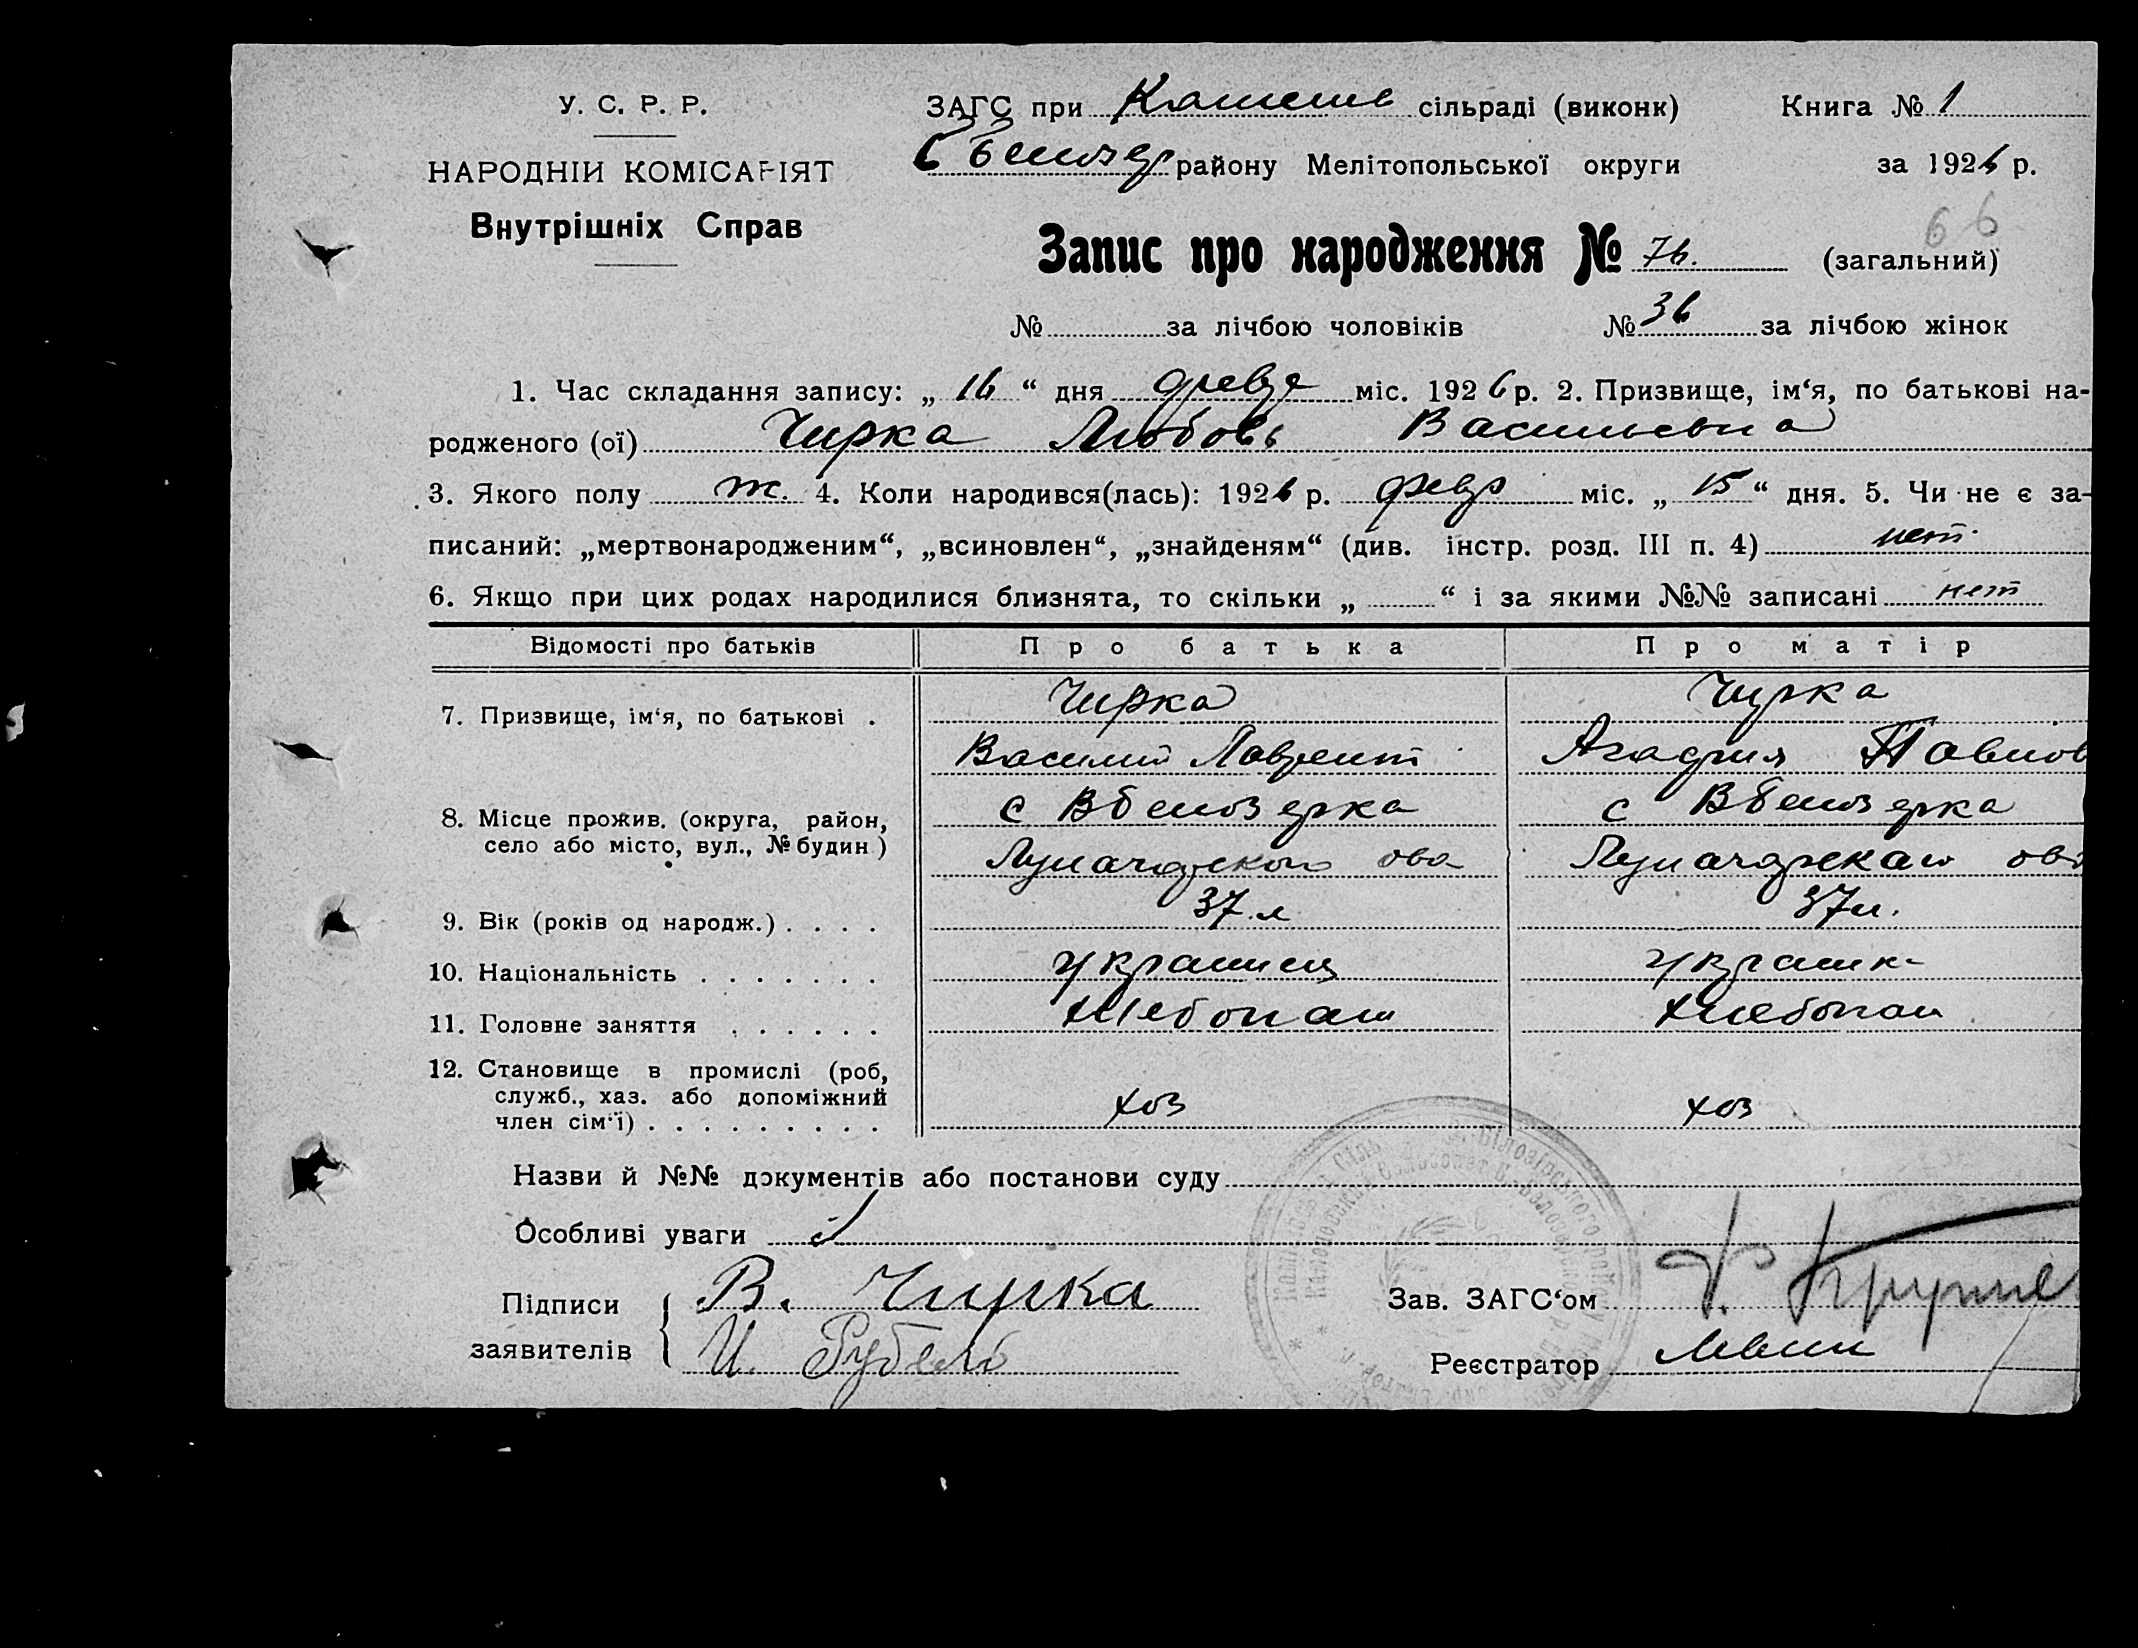 У. С. Р. Р.
НАРОДНІЙ КОМІСАРІЯТ
Внутрішніх Справ
ЗАГС при сільраді (виконк) Книга № 1
району Мелітопольської округи за 1926 р.
66
Запис про народження № 76. (загальний)
№ за лічбою чоловіків № 36 за лічбою жінок
1. Час складання запису: „ 16 “ дня февр міс. 1926 р. 2. Призвище, ім‘я, по батькові на-
родженого (ої) Чирка Любовь Васильевна
3. Якого полу ж. 4. Коли народився(лась): 1926 р. февр міс. „ 15 “ дня. 5. Чи не є за-
писаний: „мертвонародженим“, „всиновлен“, „знайденям“ (див. інстр. розд. III п. 4) нет
6. Якщо при цих родах народилися близнята, то скільки „ “ і за якими №№ записані нет
Відомості про батьків Про батька Про матір
7. Призвище, ім‘я, по батькові . Чирка Чирка
Василий Лаврент Павлов
8. Місце прожив. (округа, район, село або місто, вул., № будин) с Вбелозерка с Вбелозерка
Луначарского ова Луначарскаго ова
9. Вік (років од народж.) . . . . 37 л 37 л.
10. Національність . . . . . . . украинец украинк
11. Головне заняття . . . . . . хлебопаш хлебопаш
12. Становище в промислі (роб, служб., хаз. або допоміжний член сім‘ї) . . . . . . . . . хоз хоз
Назви й №№ документів або постанови суду
Особливі уваги
Підписи заявителів
В. Чирка
И.
Зав. ЗАГС‘ом
Реєстратор